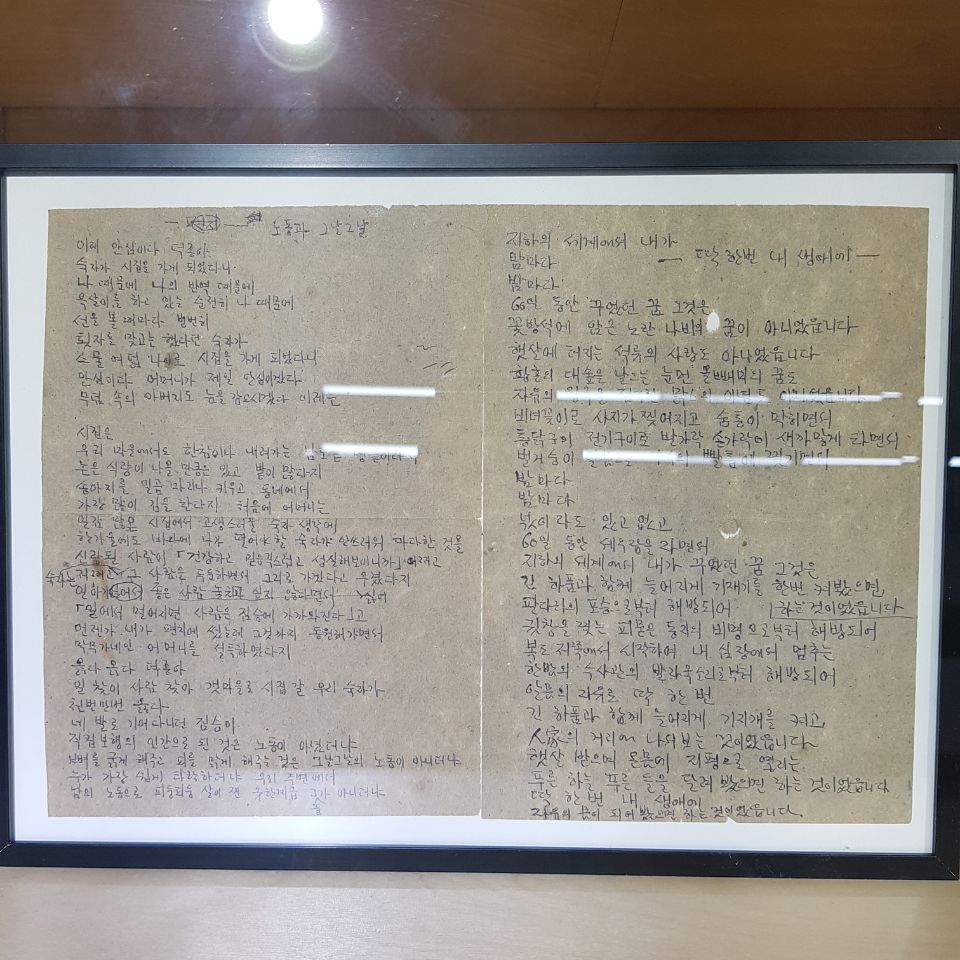 노동과 그날그날
이제 안심이다 덕종아
숙자가 시집을 가게 되었다니
나 때문에 나의 반역 때문에
옥살이를 하고 있는 순전히 나 때문에
선을 볼 때마다 번번히
툇자를 맞고는 했다던 숙자가
스물여덟 나이로 시집을 가게 되었다니
안심이다 어머니가 제일 안심이겠다
무덤 속의 아버지도 눈을 감고시겠다 이제는
시집은
우리 마을에서도 한참이나 내려가는
논은 식량이 나올 만큼은 있고 밭이 많다지
송아지를 일곱 마리나 키우고 동네에서
가장 많이 김을 한다지 처음에 어머니는
일감 많은 시집에서 고생스러울 숙자 생각에
한겨울에도 바다에 나가 떨어야 할 숙자가 안쓰러워 마다한 것을
신랑될 사람이 「건강하고 일솜씨있고 성실해보이니까」
숙자는 그 사람은 노동하면서 그리로 가겠다고 우겼다지
일하기 싫어서 좋은 사람 놓치고 싶지 않다면서 싫어
「일에서 멀어지면 사람은 짐승에 가까와진다」고
언젠가 내가 편지에 썼는데 그것까지 동원해가면서
막무가네인 어머니를 설득하였다지
옳다 옳다 덕종아
일 찾아 사람 찾아 갯마을로 시집갈 우리 숙자가
천번만번 옳다
네 발로 기어다니던 짐승이
직립보행의 인간으로 된 것은 노동이 아니더냐
뼈를 굵게 해주고 피를 맑게 해주는 것은 그날그날의 노동이 아니더냐
누가 가장 쉽게 타락하더냐 우리 주변에서
남의 노동으로 피둥피둥 살이 찐 그가 아니더냐
지하의 세계에서 내가
— 딱 한번 내 생애에 —
밤마다
밤마다
60일 동안 꾸었던 꿈 그것은
꽃방석에 앉은 노란 나비의 꿈이 아니었읍니다
햇살에 터지는 석류의 사랑도 아니었읍니다
황혼의 대숲을 날으는 눈먼 올빼미의 꿈도
자유의
비녀꽂이로 사지가 찢어지고 숨통이 막히면서
통닭구이 전기구이로 발가락 손가락이 새까맣게 타면서
벌거숭이
밤마다
밤마다
넋이라도 있고 없고
60일 동안 세우잠을 자면서
지하의 세계에서 내가 꾸었던 꿈 그것은
긴 하품과 함께 늘어지게 기지개를 한번 켜봤으면
하는 것이었읍니다
판다리의 포승으로부터 해방되어
귀청을 찢는 피묻은 동지의 비명으로부터 해방되어
복도 저쪽에서 시작하여 내 심장에서 멈추는
한밤의 수사관의 발자욱소리로부터 해방되어
알몸의 자유로 딱 한 번
긴 하품과 함께 늘어지게 기지개를 켜고
人家의 거리에 나서보는 것이었읍니다
햇살 받으며 온몸에 지평으로 열리는
푸른 하늘 푸른 들을 달려 봤으면 하는 것이었읍니다
딱 한번 내 생애에
자유의 몸이 되어 봤으면 하는 것이었읍니다